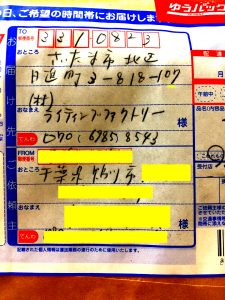 日、ご希望の時間帯にお届けします
ゆうパック
TO
郵便番号
3310823
おところ
さいたま市北区
日進町3-818-107
お届け先
(株)
ライティングファクトリー
おなまえ
様
でんわ
070 6985 8543
FROM
郵便番号
おところ
千葉県
市
ご依頼主
おなまえ
様
でんわ
記載された個人情報は運送業務の遂行のために使用いたします。
午前中